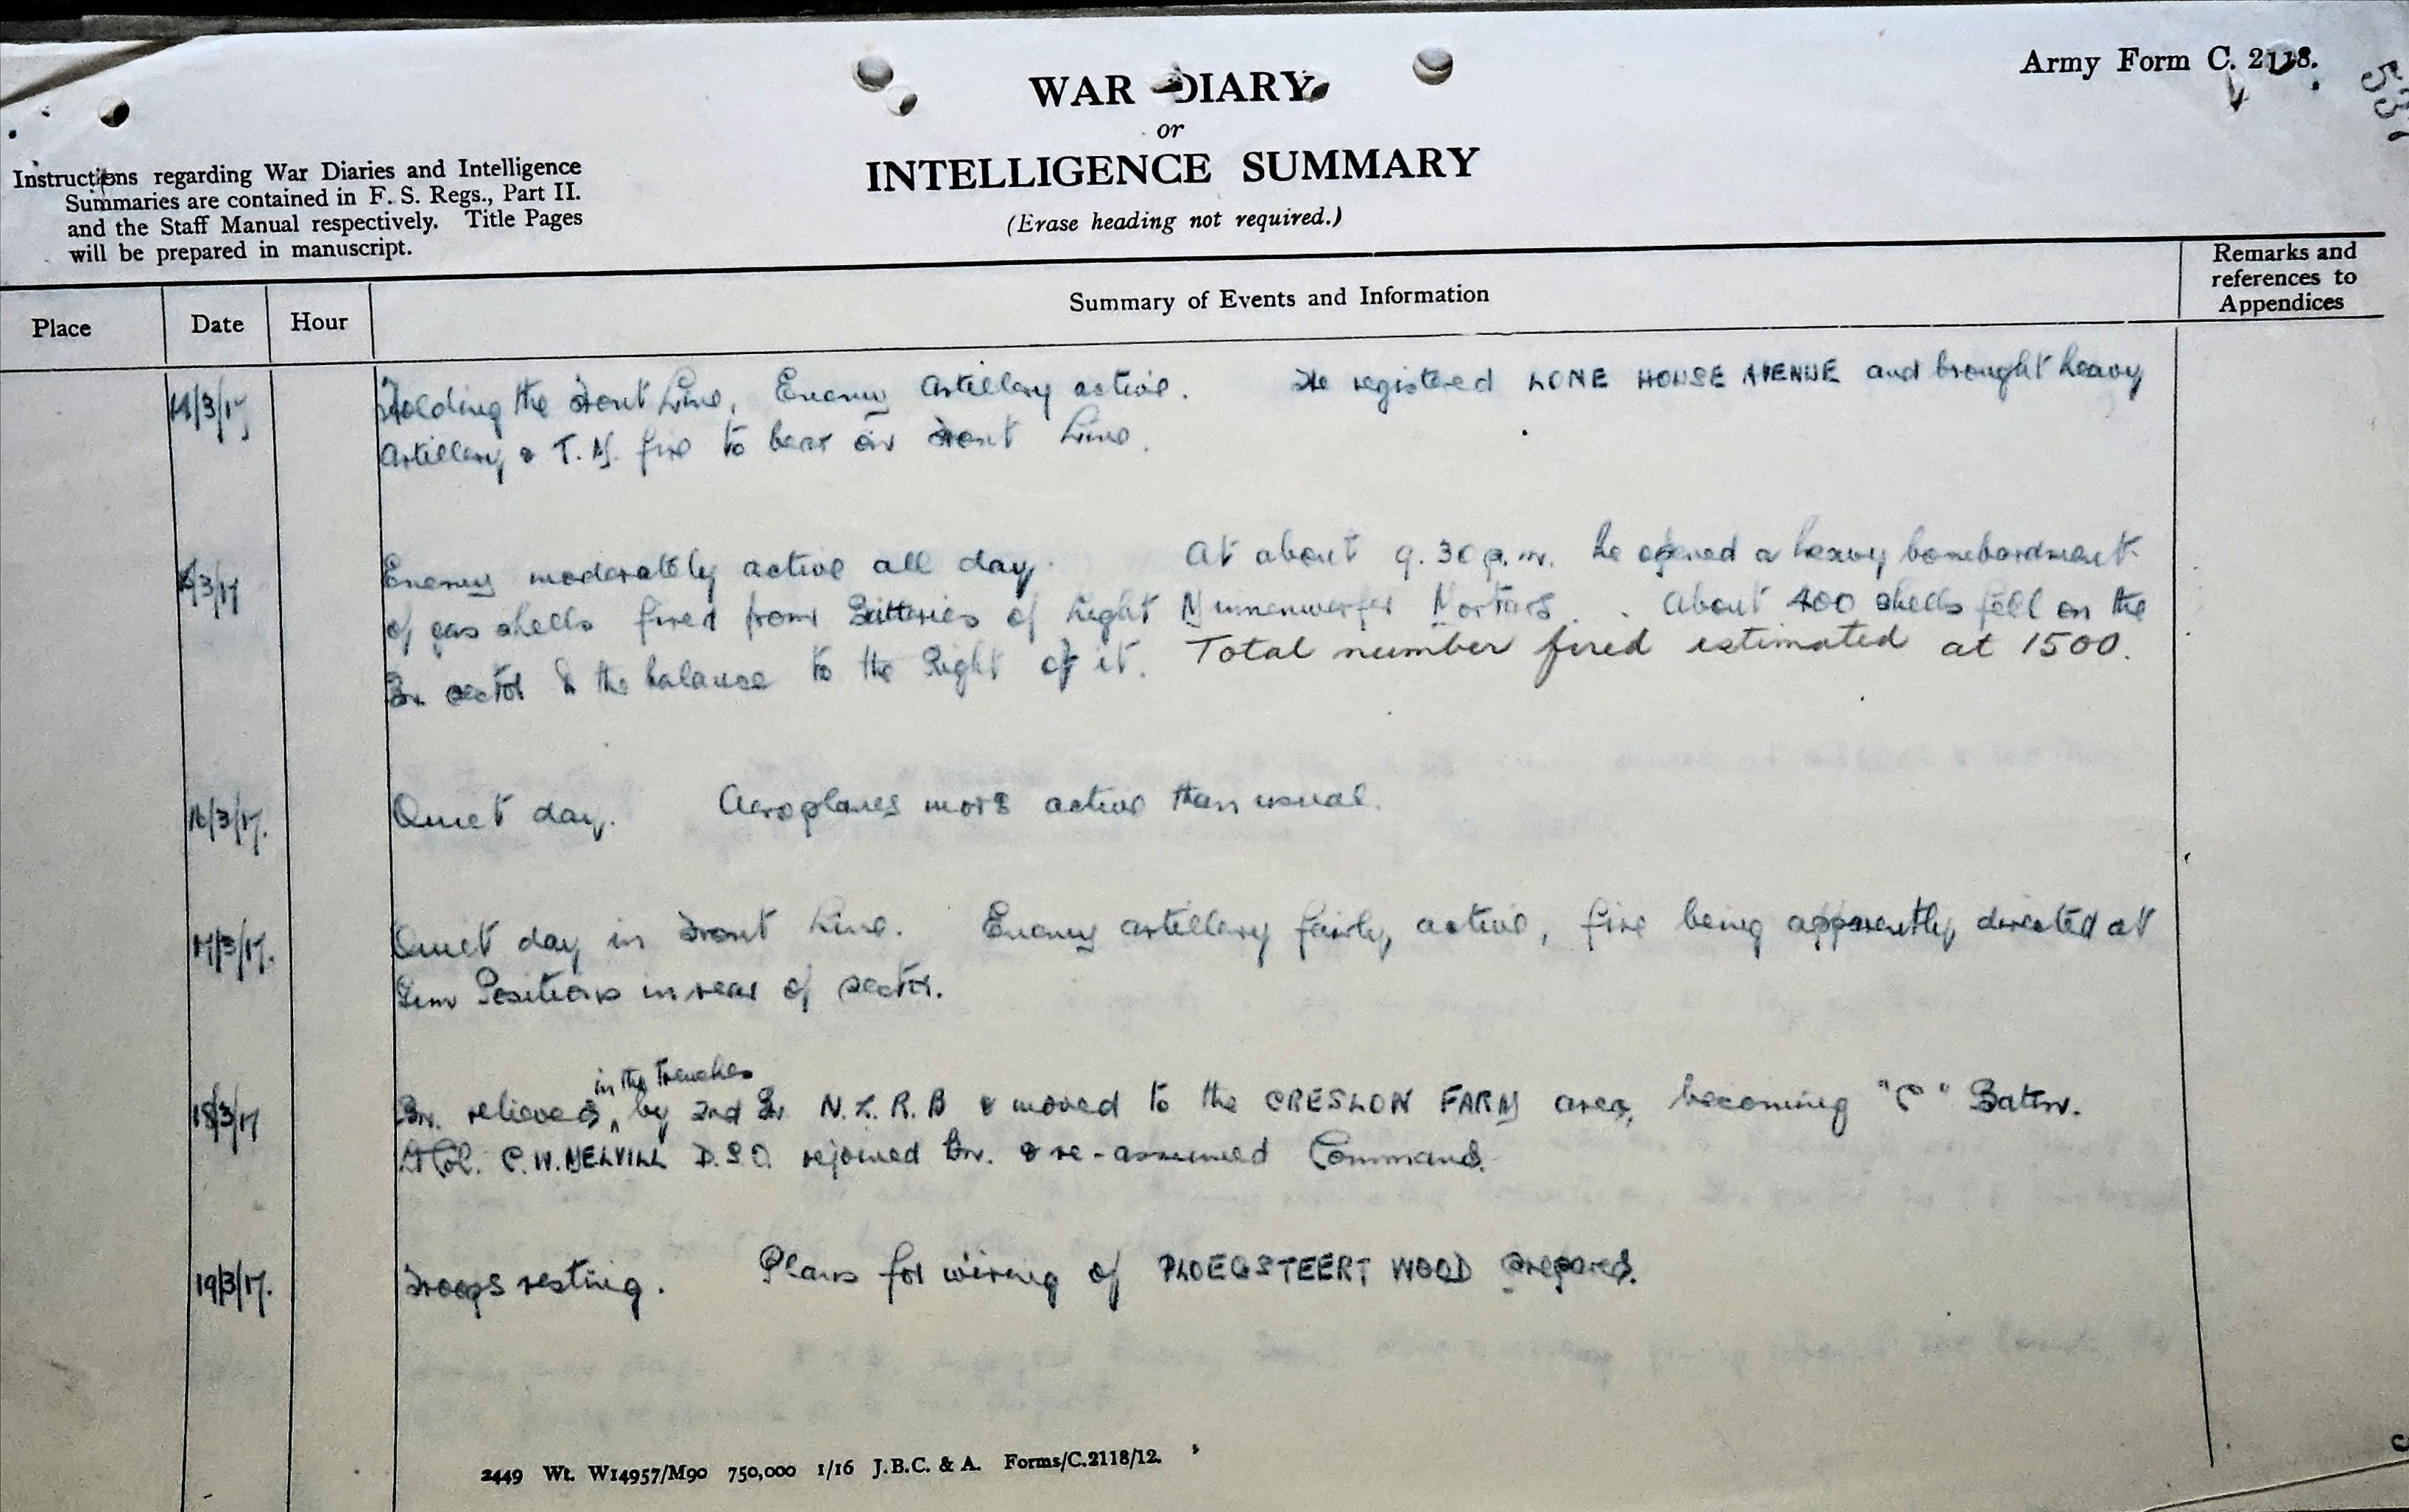 Army Form C. 2118.
537
WAR DIARY
or
INTELLIGENCE SUMMARY
(Erase heading not required.)
Instructions regarding War Diaries and Intelligence
Summaries are contained in F. S. Regs., Part II.
and the Staff Manual respectively. Title Pages
will be prepared in manuscript.
Place Date Hour Summary of Events and Information Remarks and references to Appendices
14/3/17 Holding the Front Line, Enemy Artillery active. He registered LONE HOUSE AVENUE and brought heavy
Artillery & T.M. fire to bear on Front Line.
15/3/17 Enemy moderately active all day. At about 9.30 p.m. he opened a heavy bombardment
of gas shells fired from Batteries of Light Minnenwerfer Mortars. About 400 shells fell on the
Bn sector & the balance to the Right of it. Total number fired estimated at 1500.
16/3/17. Quiet day. Aeroplanes more active than usual.
17/3/17. Quiet day in Front Line. Enemy artillery fairly active, fire being apparently directed at
Gun Positions in rear of sector.
18/3/17 Bn. relieved in the trenches by 2nd Bn N.Z.R.B & moved to the CRESLOW FARM area, becoming "C" Battn.
Lt Col. C.W. MELVILL D.S.O. rejoined Bn. & re-assumed Command.
19/3/17. Troops resting. Plans for wiring of PLOEGSTEERT WOOD prepared.
2449 Wt. W14957/M90 750,000 1/16 J.B.C. & A. Forms/C.2118/12.